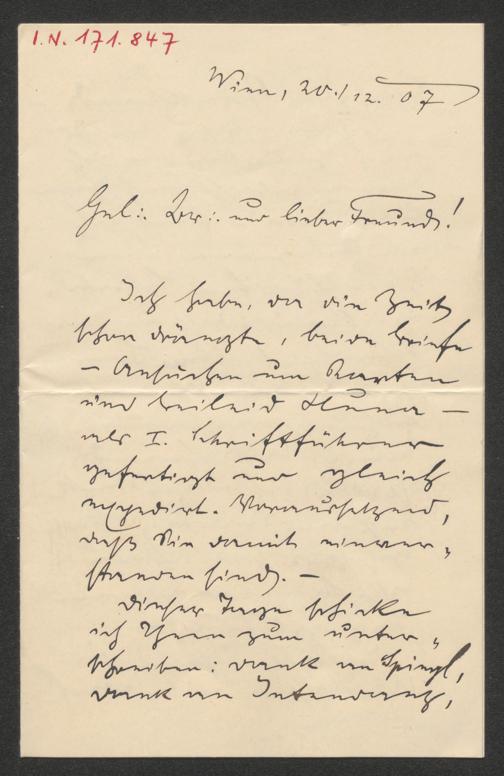 I.N. 171.847
Wien, 20./12. 07
Gel:. Br:. und lieber Freund!
Ich habe, da die Zeit
schon drängte, beide Briefe
– Ansuchen um Karten
und Beileid Huna –
als I. Schriftführer
gefertigt und gleich
expedirt. Voraussetzend,
daß Sie damit einver-
standen sind. –
Dieser Tage schicke
ich Ihnen zum unter-
schreiben: Dank an Spiegl,
Dank an Intendanz,